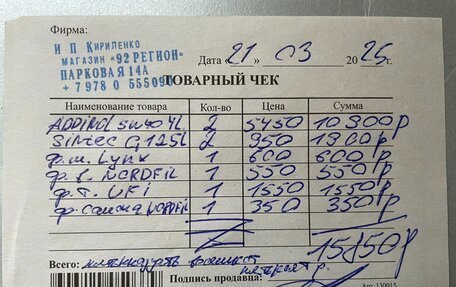 Фирма:
И П Кириленко
МАГАЗИН "92 РЕГИОН"
ПАРКОВАЯ 14А
+ 7 978 0 555090
Дата « 21 » 03 2025г.
ТОВАРНЫЙ ЧЕК
Наименование товара Кол-во Цена Сумма
ADDINOL 5W40 4L 2 5450 10900р
Sintec G12 5L 2 950 1900р
ф.м. Lynx 1 600 600р
ф.в. NORDFIL 1 550 550р
ф.т. UFI 1 1550 1550р
ф. салона NORDFIL 1 350 350р
15850р
Всего: пятнадцать восемьсот пятьдесят р.
Подпись продавца:
Арт. 130015